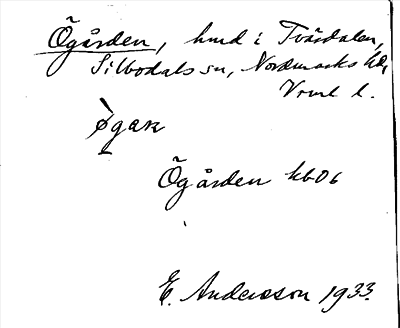 Ögården, hmd i Tvärdalen,
Silbodals sn, Nordmarks hd,
Vrml l.
øgaɴ
Ögården kb06
E. Andersson 1933.